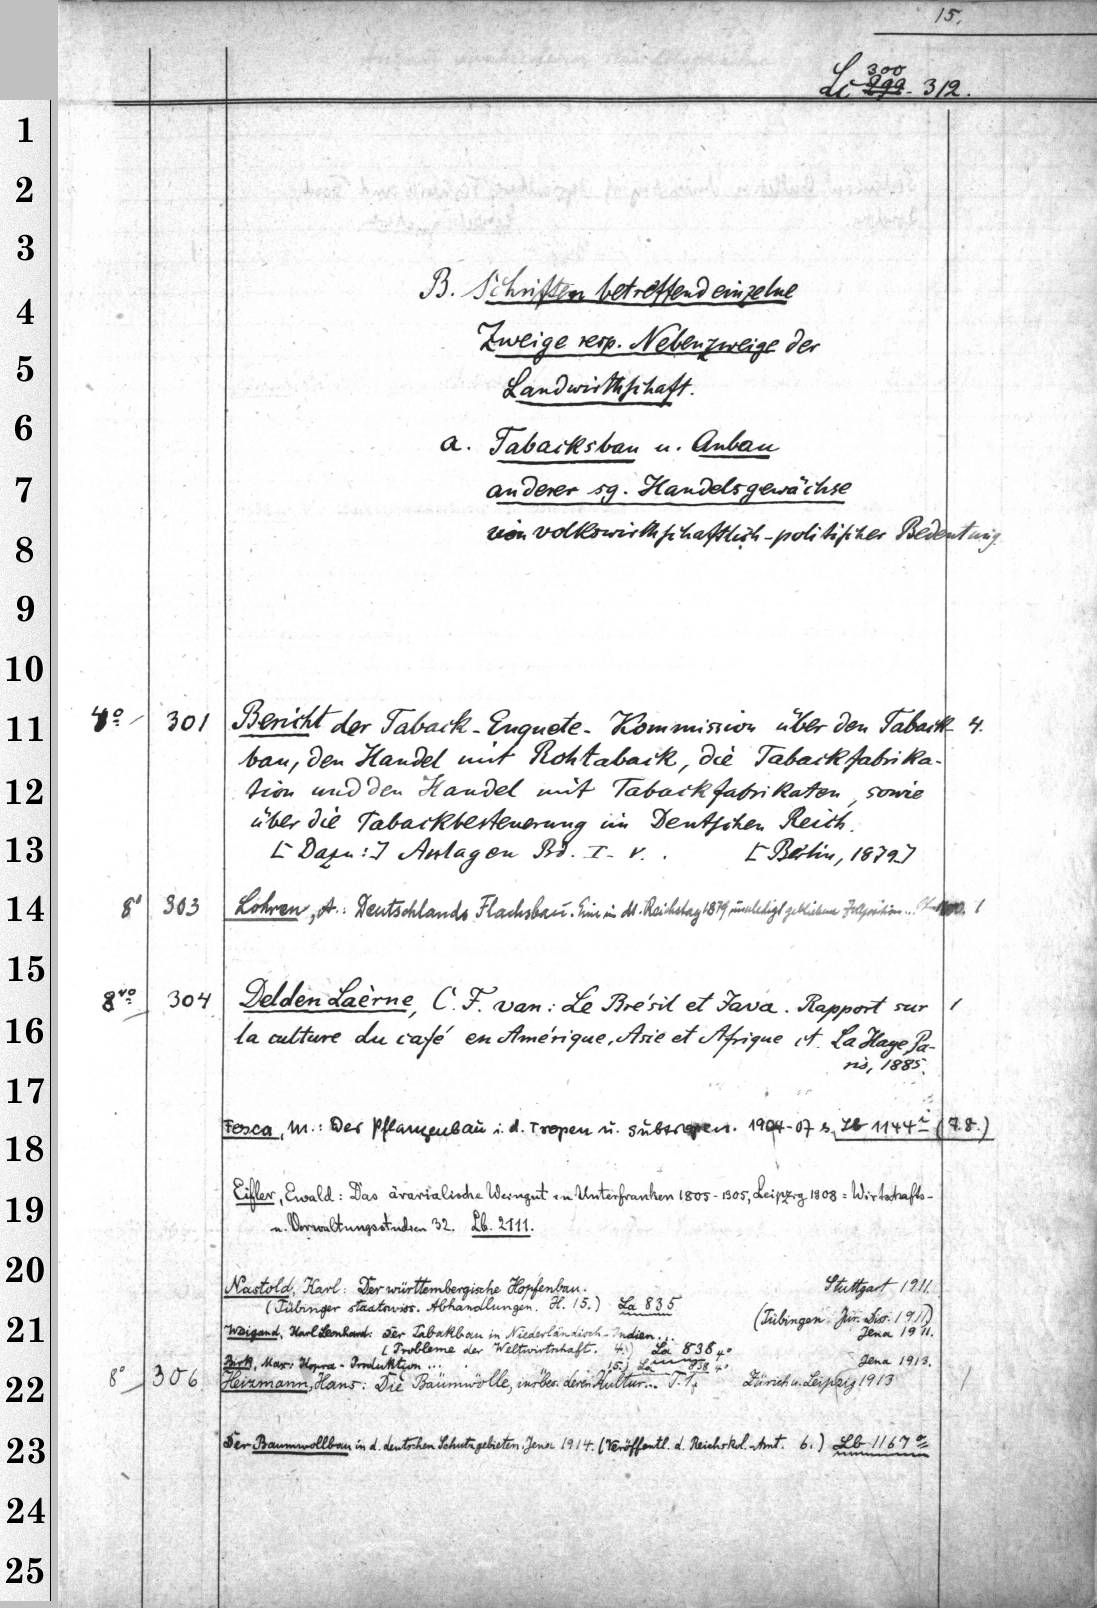 15.
300
Li 299 - 312.
1
2
3
B. Schriften betreffend einzelne
4
Zweige resp. Nebenzweige der
5
Landwirthschaft.
6
a. Tabacksbau u. Anbau
7
anderer sg. Handelsgewächse
8
von volkswirthschaftlich-politischer Bedeutung
9
10
11 4o 301 Bericht der Taback-Enquete-Kommission über den Taback- 4.
bau, den Handel mit Rohtaback, die Tabackfabrika-
12 tion und den Handel mit Tabackfabrikaten, sowie
über die Tabackbesteuerung im Deutschen Reich.
13 [Dazu:] Anlagen Bd. I-V. [Berlin, 1879]
14 8o 303 Lohren, A.: Deutschlands Flachsbau. Eine in d. Reichstag 1879 unerledigt gebliebene 1
15
8vo 304 Delden Laërne, C. F. van: Le Brésil et Java. Rapport sur 1
16 la culture du café en Amérique, Asie et Afrique La Haye, Pa-
ris, 1885.
17
Fesca, M.: Der Pflanzenbau i. d. Tropen u. Subtropen. 1904-07 s. Lb 1144 (7.8.)
18
Eifler, Ewald: Das ärarialische Weingut in Unterfranken 1805-1905, Leipzig 1908 = Wirtschafts-
19
u. Verwaltungsstudien 32. Lb. 2111.
20
Nastold, Karl: Der württembergische Hopfenbau. Stuttgart 1911.
(Tübinger staatswiss. Abhandlungen. H. 15.) La 835 (Tübingen Jur. Diss. 1911)
21 Weigand, Karl Leonhard: Der Tabakbau in Niederländisch-Indien... Jena 1911.
(Probleme der Weltwirtschaft. 4.) La 838 4o
Zirk, Max: Kopra-Produktion ... (5.) La 838 4o Jena 1913.
22 8o 306 Heizmann, Hans: Die Baumwolle, insbes. deren Kultur... T. 1. Zürich u. Leipzig 1913 1
23 Der Baumwollbau in d. deutschen Schutzgebieten. Jena 1914. (Veröffentl. d. Reichskol.-Amt. 6.) Lb 1167
24
25